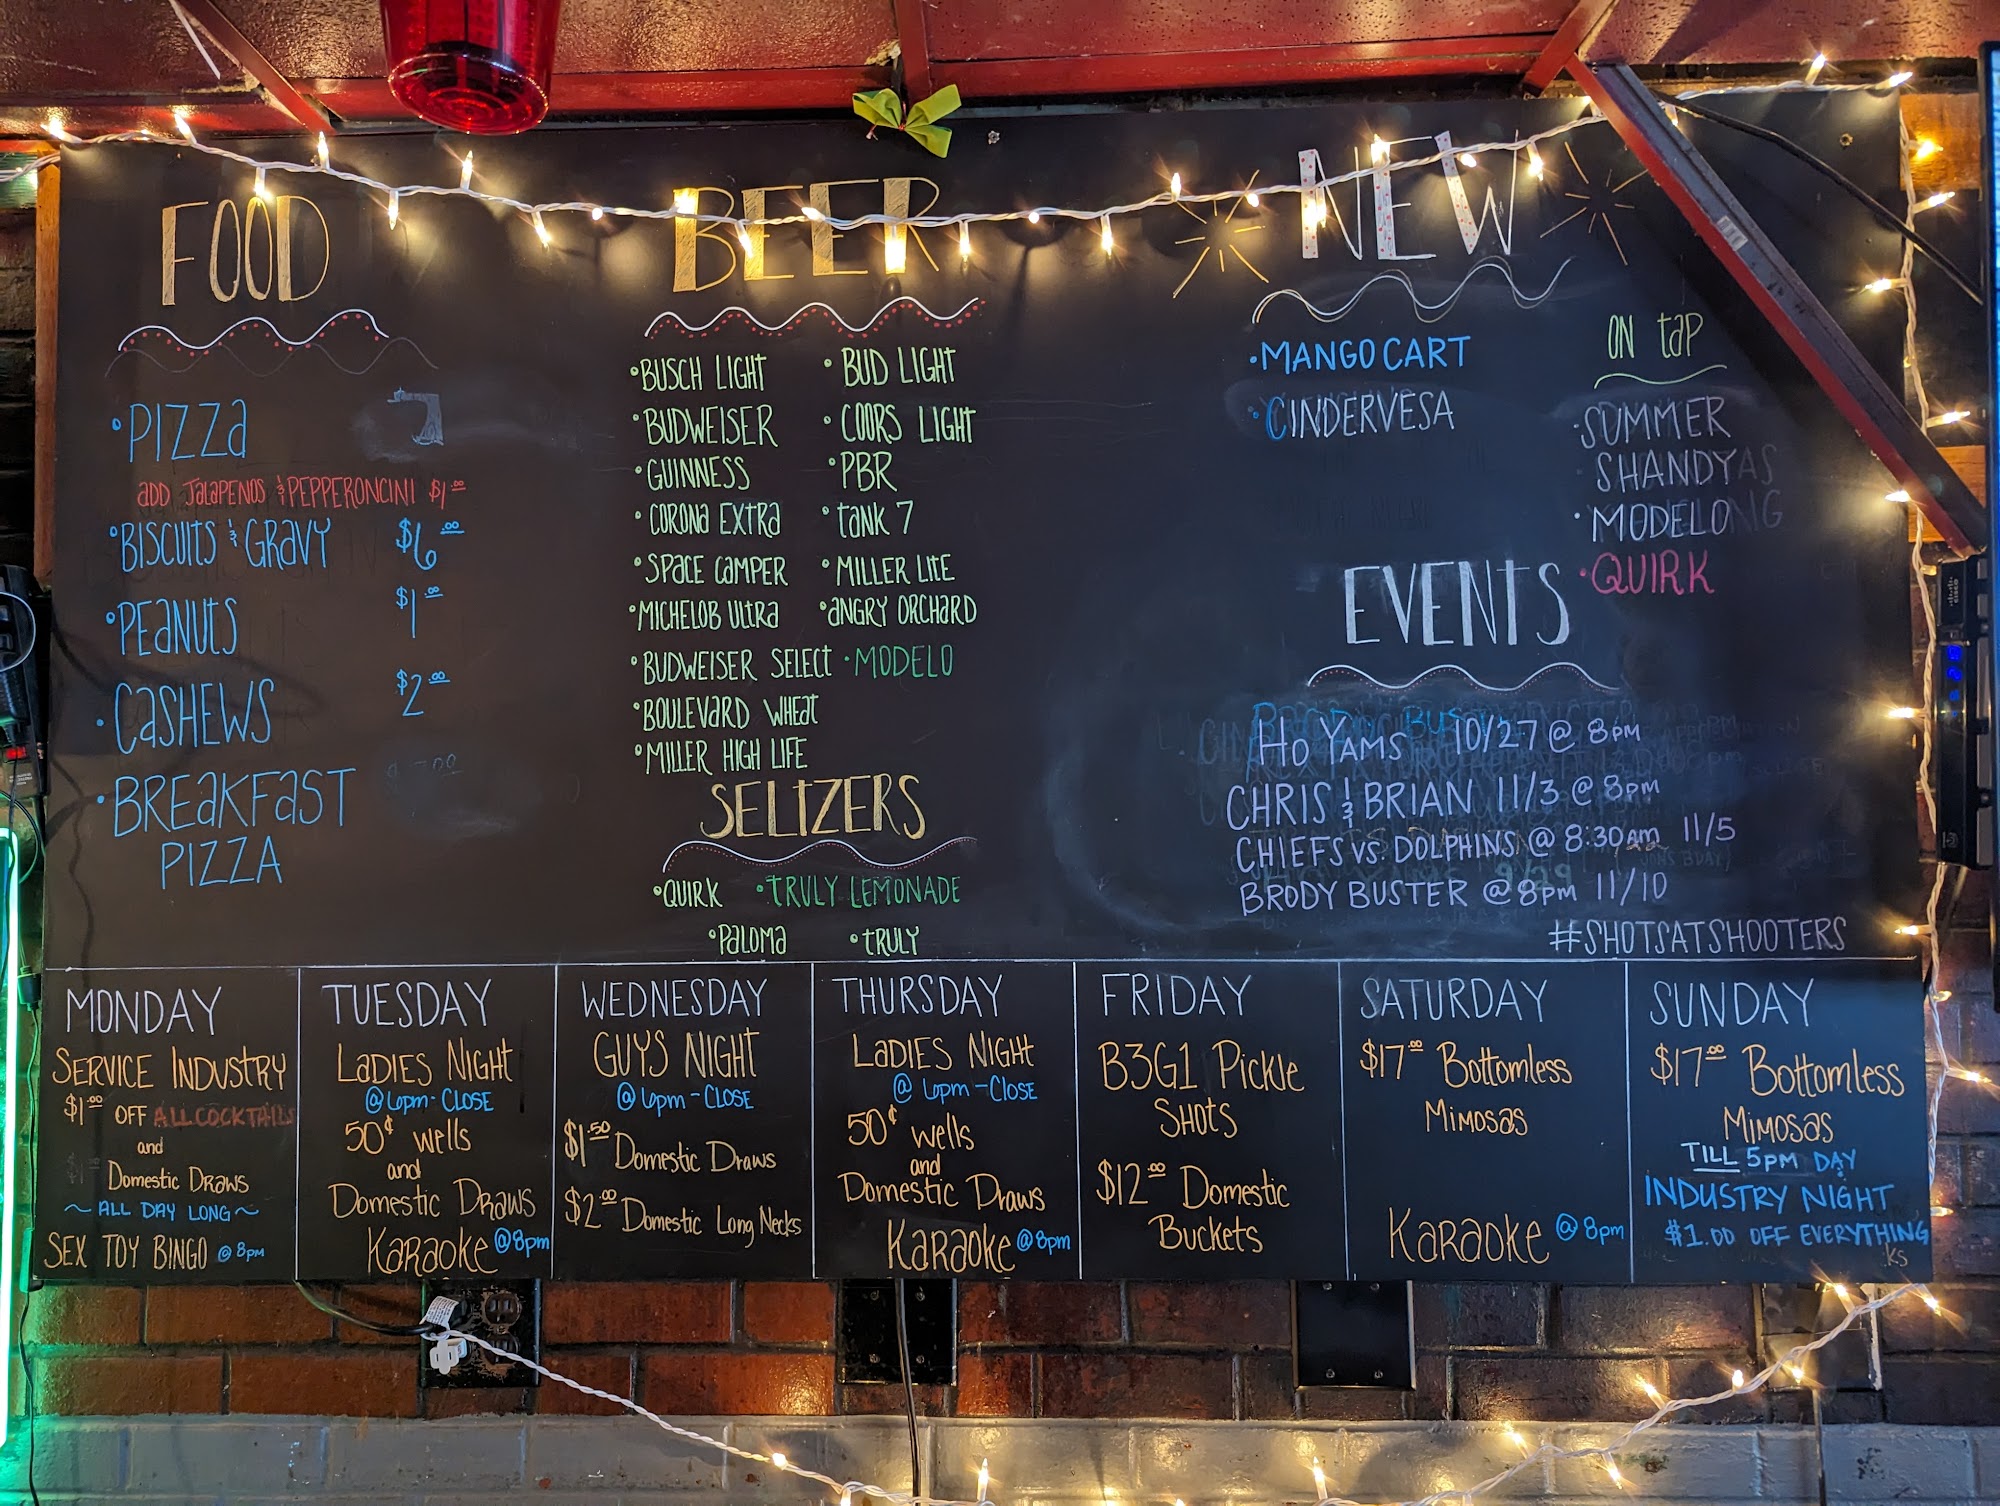 FOOD
• PIZZa
aDD JaLaPENOS & PEPPERONCINI $1.00
• BISCUITS & GRaVY $6.00
• PEaNUtS $1.00
• CaSHEWS $2.00
• BREaKFaST
PIZZA
BEER
• BUSCH LIGHT
• BUDWEISER
• GUINNESS
• CORONa EXTRa
• SPaCE CaMPER
• MICHELOB ULtRa
• BUDWEISER SELECT
• BOULEVARD WHEat
• MILLER HIGH LIFE
• BUD LIGHT
• COORS LIGHT
• PBR
• taNK 7
• MILLER LItE
• aNGRY ORCHARD
• MODELO
SELtZERS
• QUIRK • tRULY LEMONADE
• PaLOMa • tRULY
NEW
• MANGO CART
• CINDERVESA
ON taP
• SUMMER
SHANDY
• MODELO
• QUIRK
EVENtS
HO YAMS 10/27 @ 8pm
CHRIS & BRIAN 11/3 @ 8pm
CHIEFS vs. DOLPHINS @ 8:30am 11/5
BRODY BUSTER @ 8pm 11/10
#SHOTSATSHOOTERS
MONDAY
SERVICE INDUSTRY
$1.00 OFF ALL COCKTAILS
and
Domestic DRaws
~ ALL DAY LONG ~
SEX TOY BINGO @ 8pm
TUESDAY
LaDIES NIGHt
@ 6pm - CLOSE
50¢ wells
and
Domestic DRaws
KaRaoke @ 8pm
WEDNESDAY
GUYS NIGHT
@ 6pm - CLOSE
$1.50 Domestic Draws
$2.00 Domestic Long Necks
THURSDAY
LaDIES NIGHt
@ 6pm - CLOSE
50¢ wells
and
Domestic Draws
KaRaoke @ 8pm
FRIDAY
B3G1 Pickle
SHOtS
$12.00 Domestic
Buckets
SATURDAY
$17.00 Bottomless
MIMOSAS
KaRaoke @ 8pm
SUNDAY
$17.00 Bottomless
MIMOSAS
TILL 5pm DAY
INDUSTRY NIGHT
$1.00 OFF EVERYTHING